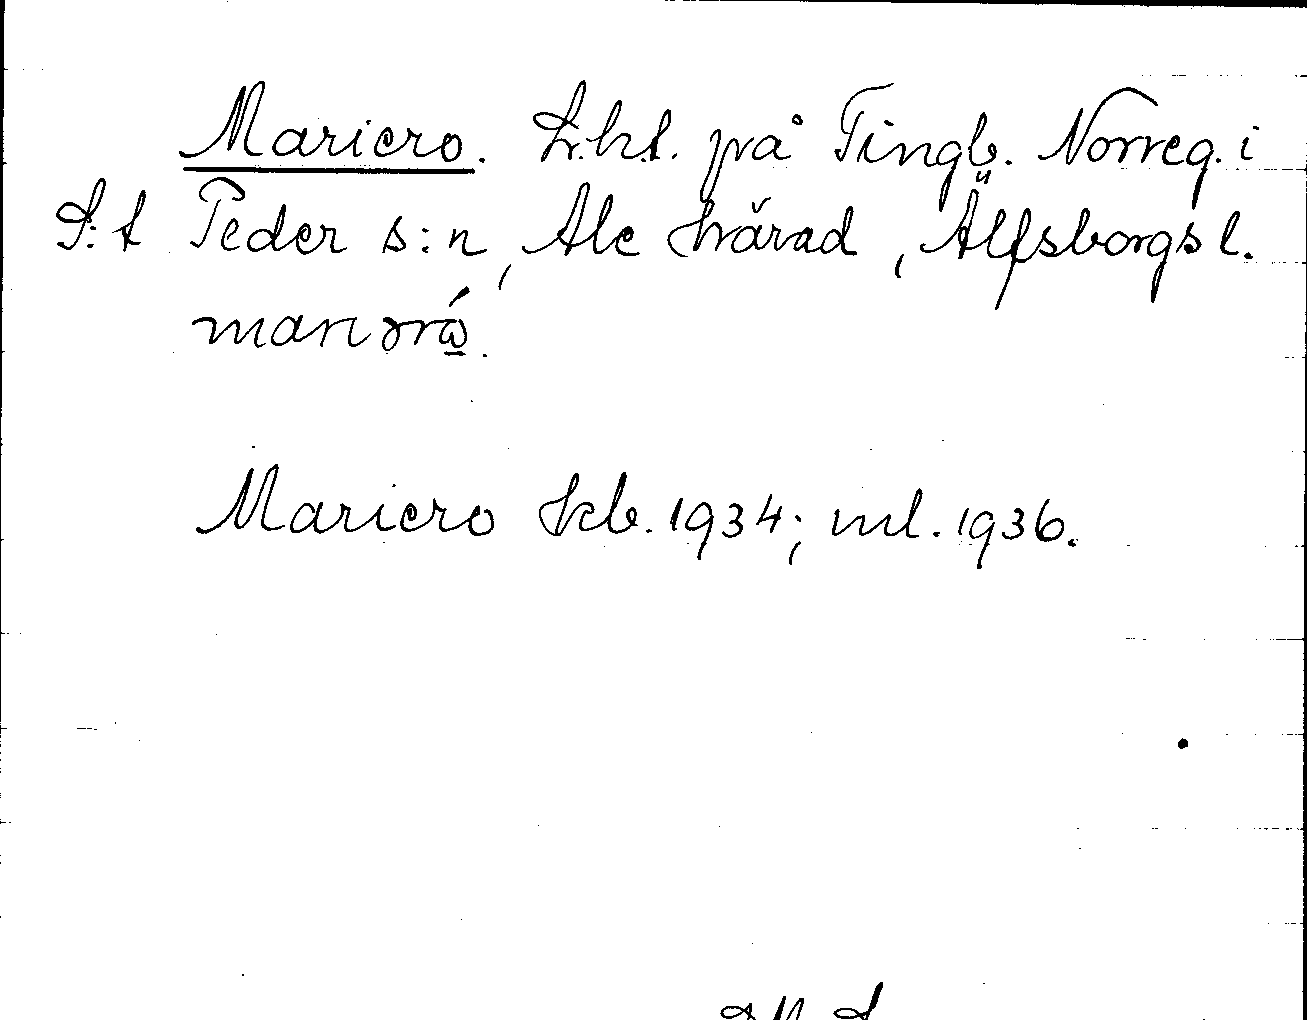 Mariero. L.hl. på Tingb. Norreg. i
S:t Peder s:n, Ale härad, Älfsborgs l.
Mariero skb. 1934; ml. 1936.